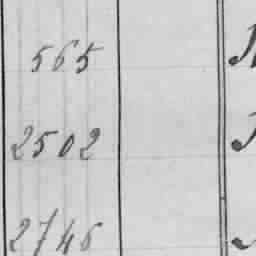 565
2502
2746